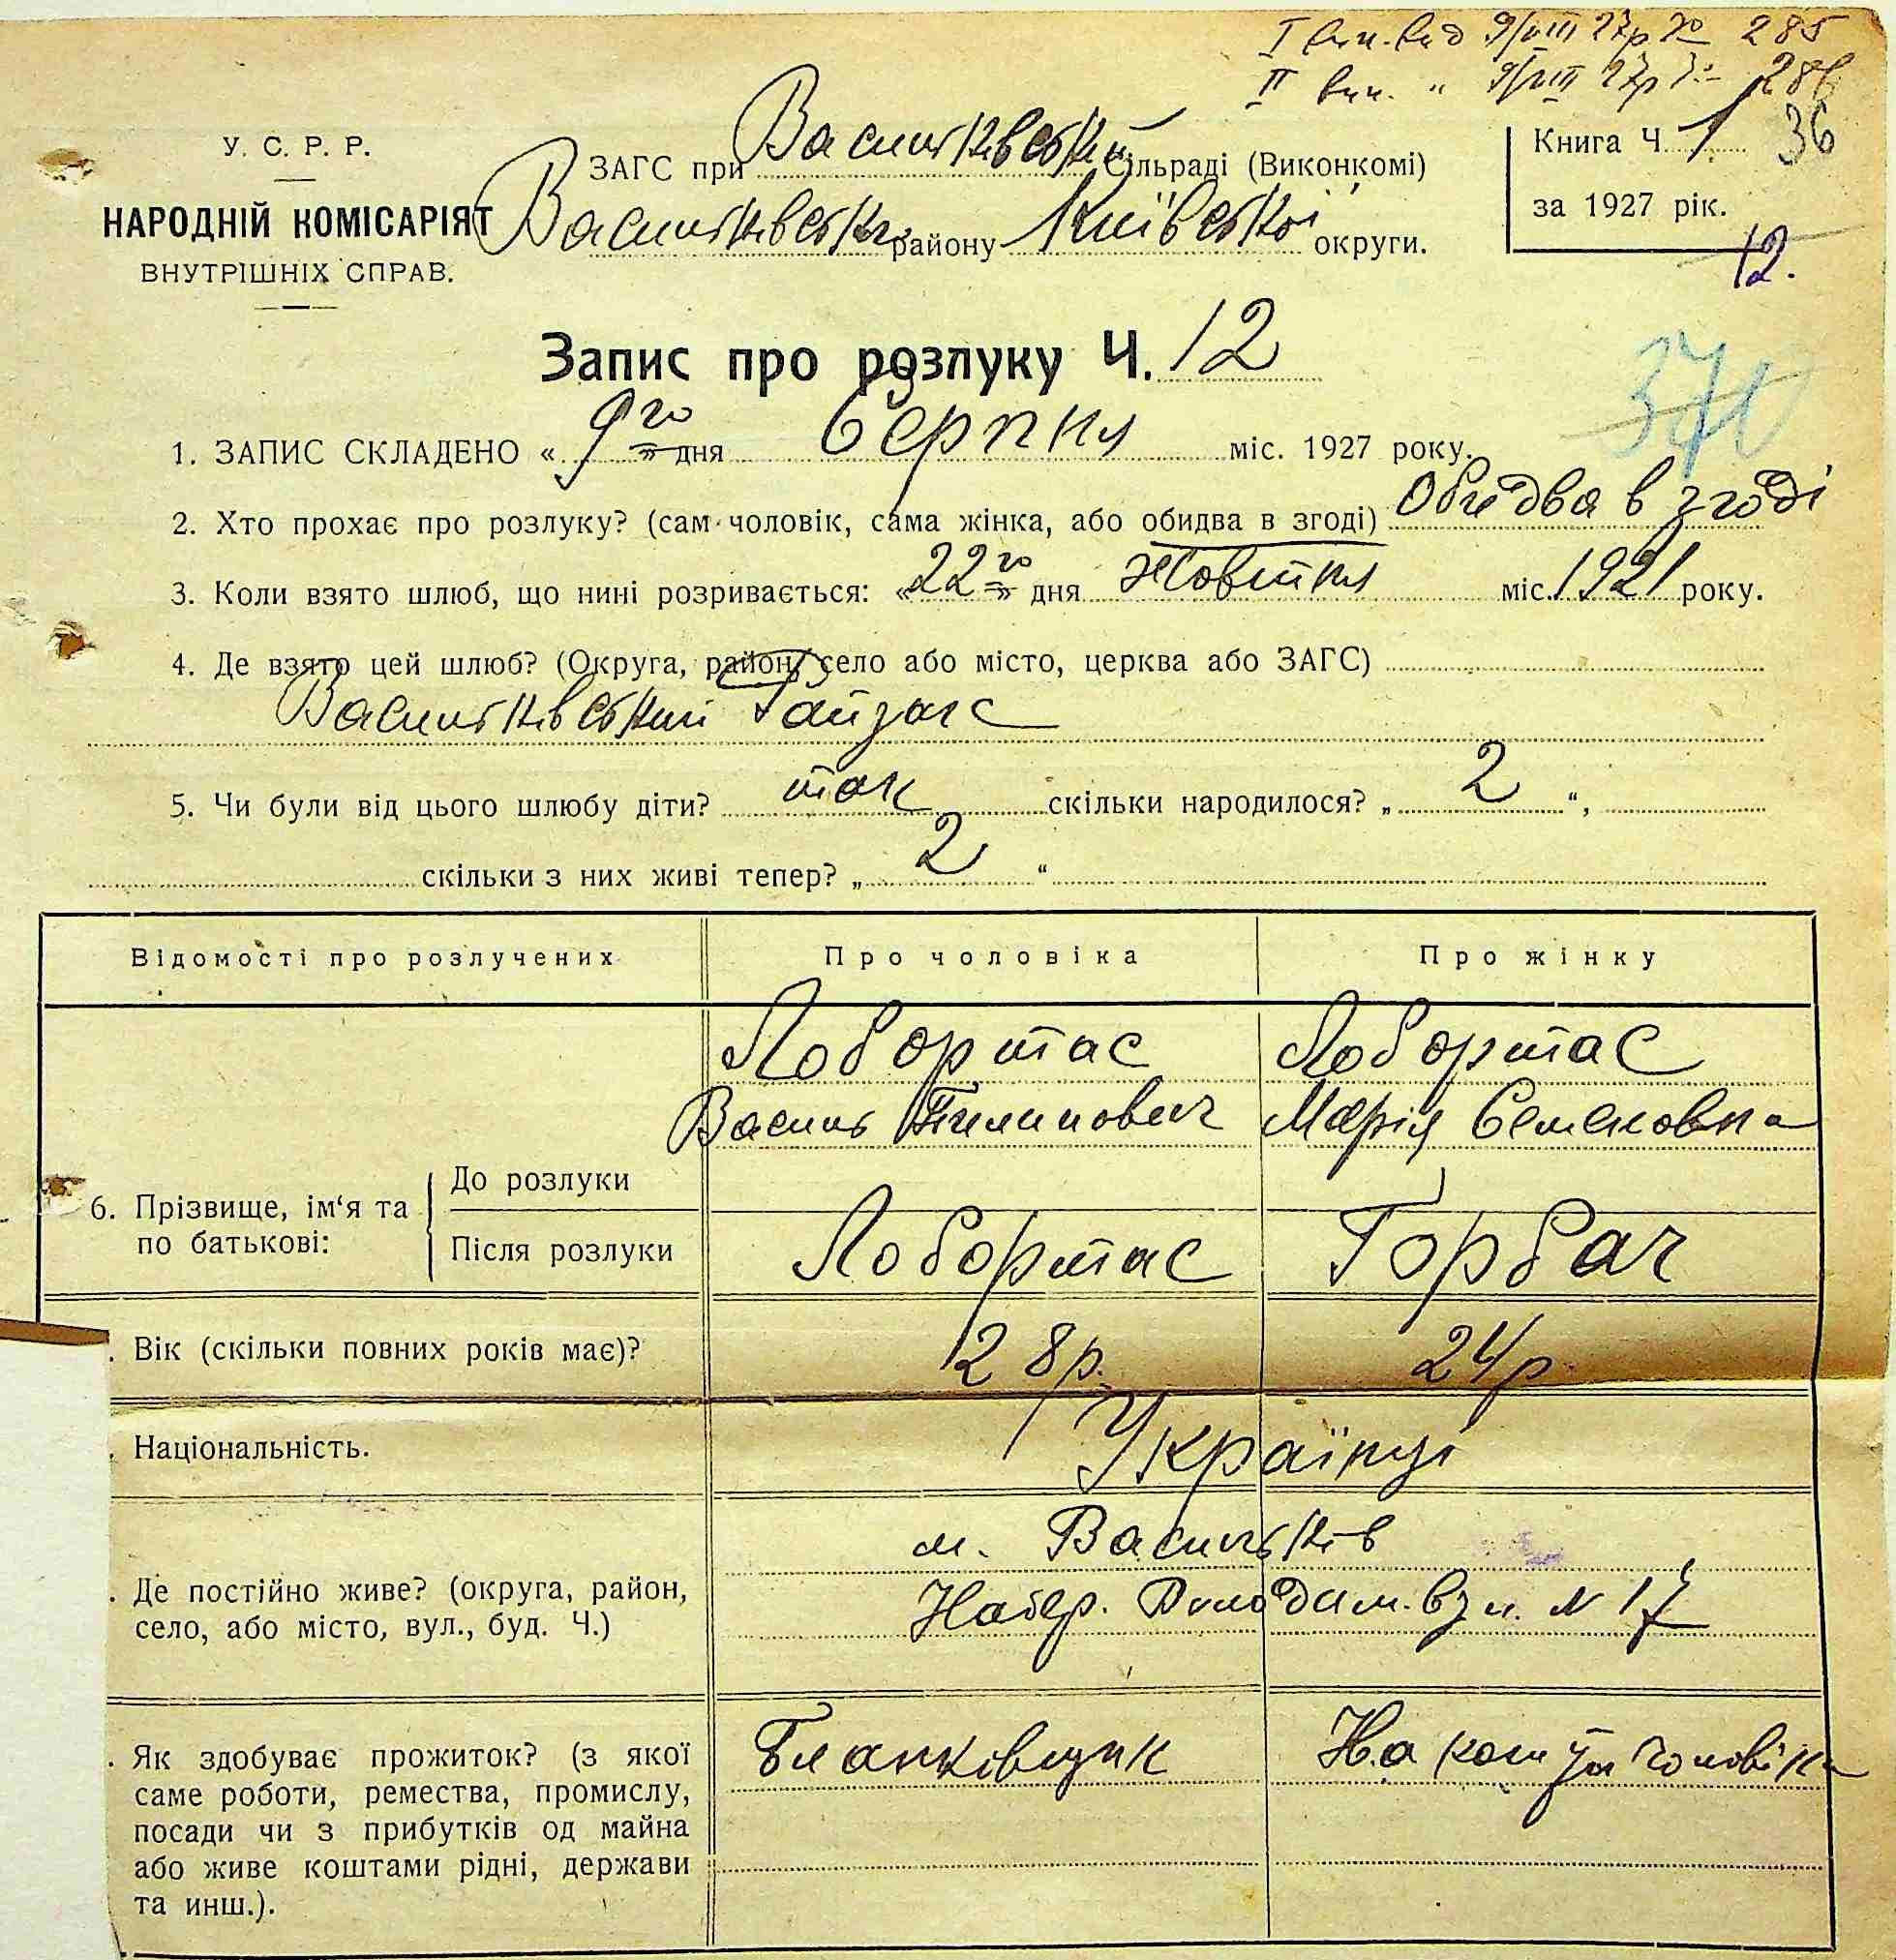 І вип. вид 9/VIII 27р № 285
ІІ вип. " 9/VIII 27р № 286
У. С. Р. Р.
НАРОДНІЙ КОМІСАРІЯТ
ВНУТРІШНІХ СПРАВ.
ЗАГС при Васильківській Сільраді (Виконкомі)
Васильківськ. району Київської округи.
Книга Ч. 1 36
за 1927 рік.
12.
Запис про розлуку Ч. 12
370
1. ЗАПИС СКЛАДЕНО « 9го » дня Серпня міс. 1927 року.
2. Хто прохає про розлуку? (сам чоловік, сама жінка, або обидва в згоді) Обидва в згоді
3. Коли взято шлюб, що нині розривається: « 22го » дня Жовтня міс. 1921 року.
4. Де взято цей шлюб? (Округа, район, село або місто, церква або ЗАГС)
Васильківський Райзагс
5. Чи були від цього шлюбу діти? так скільки народилося? „ 2 “,
скільки з них живі тепер? „ 2 “
Відомості про розлучених Про чоловіка Про жінку
6. Прізвище, ім‘я та по батькові:
До розлуки
Лобортас Лобортас
Василь Пилипович Марія Семеновна
Після розлуки
Лобортас Горбач
. Вік (скільки повних років має)? 28р. 24р
. Національність. Українці
. Де постійно живе? (округа, район,
село, або місто, вул., буд. Ч.)
м. Васильків
Набер. Володим. вул. N 17
. Як здобуває прожиток? (з якої
саме роботи, ремества, промислу,
посади чи з прибутків од майна
або живе коштами рідні, держави
та инш.).
Бланківщик На кошти чоловіка